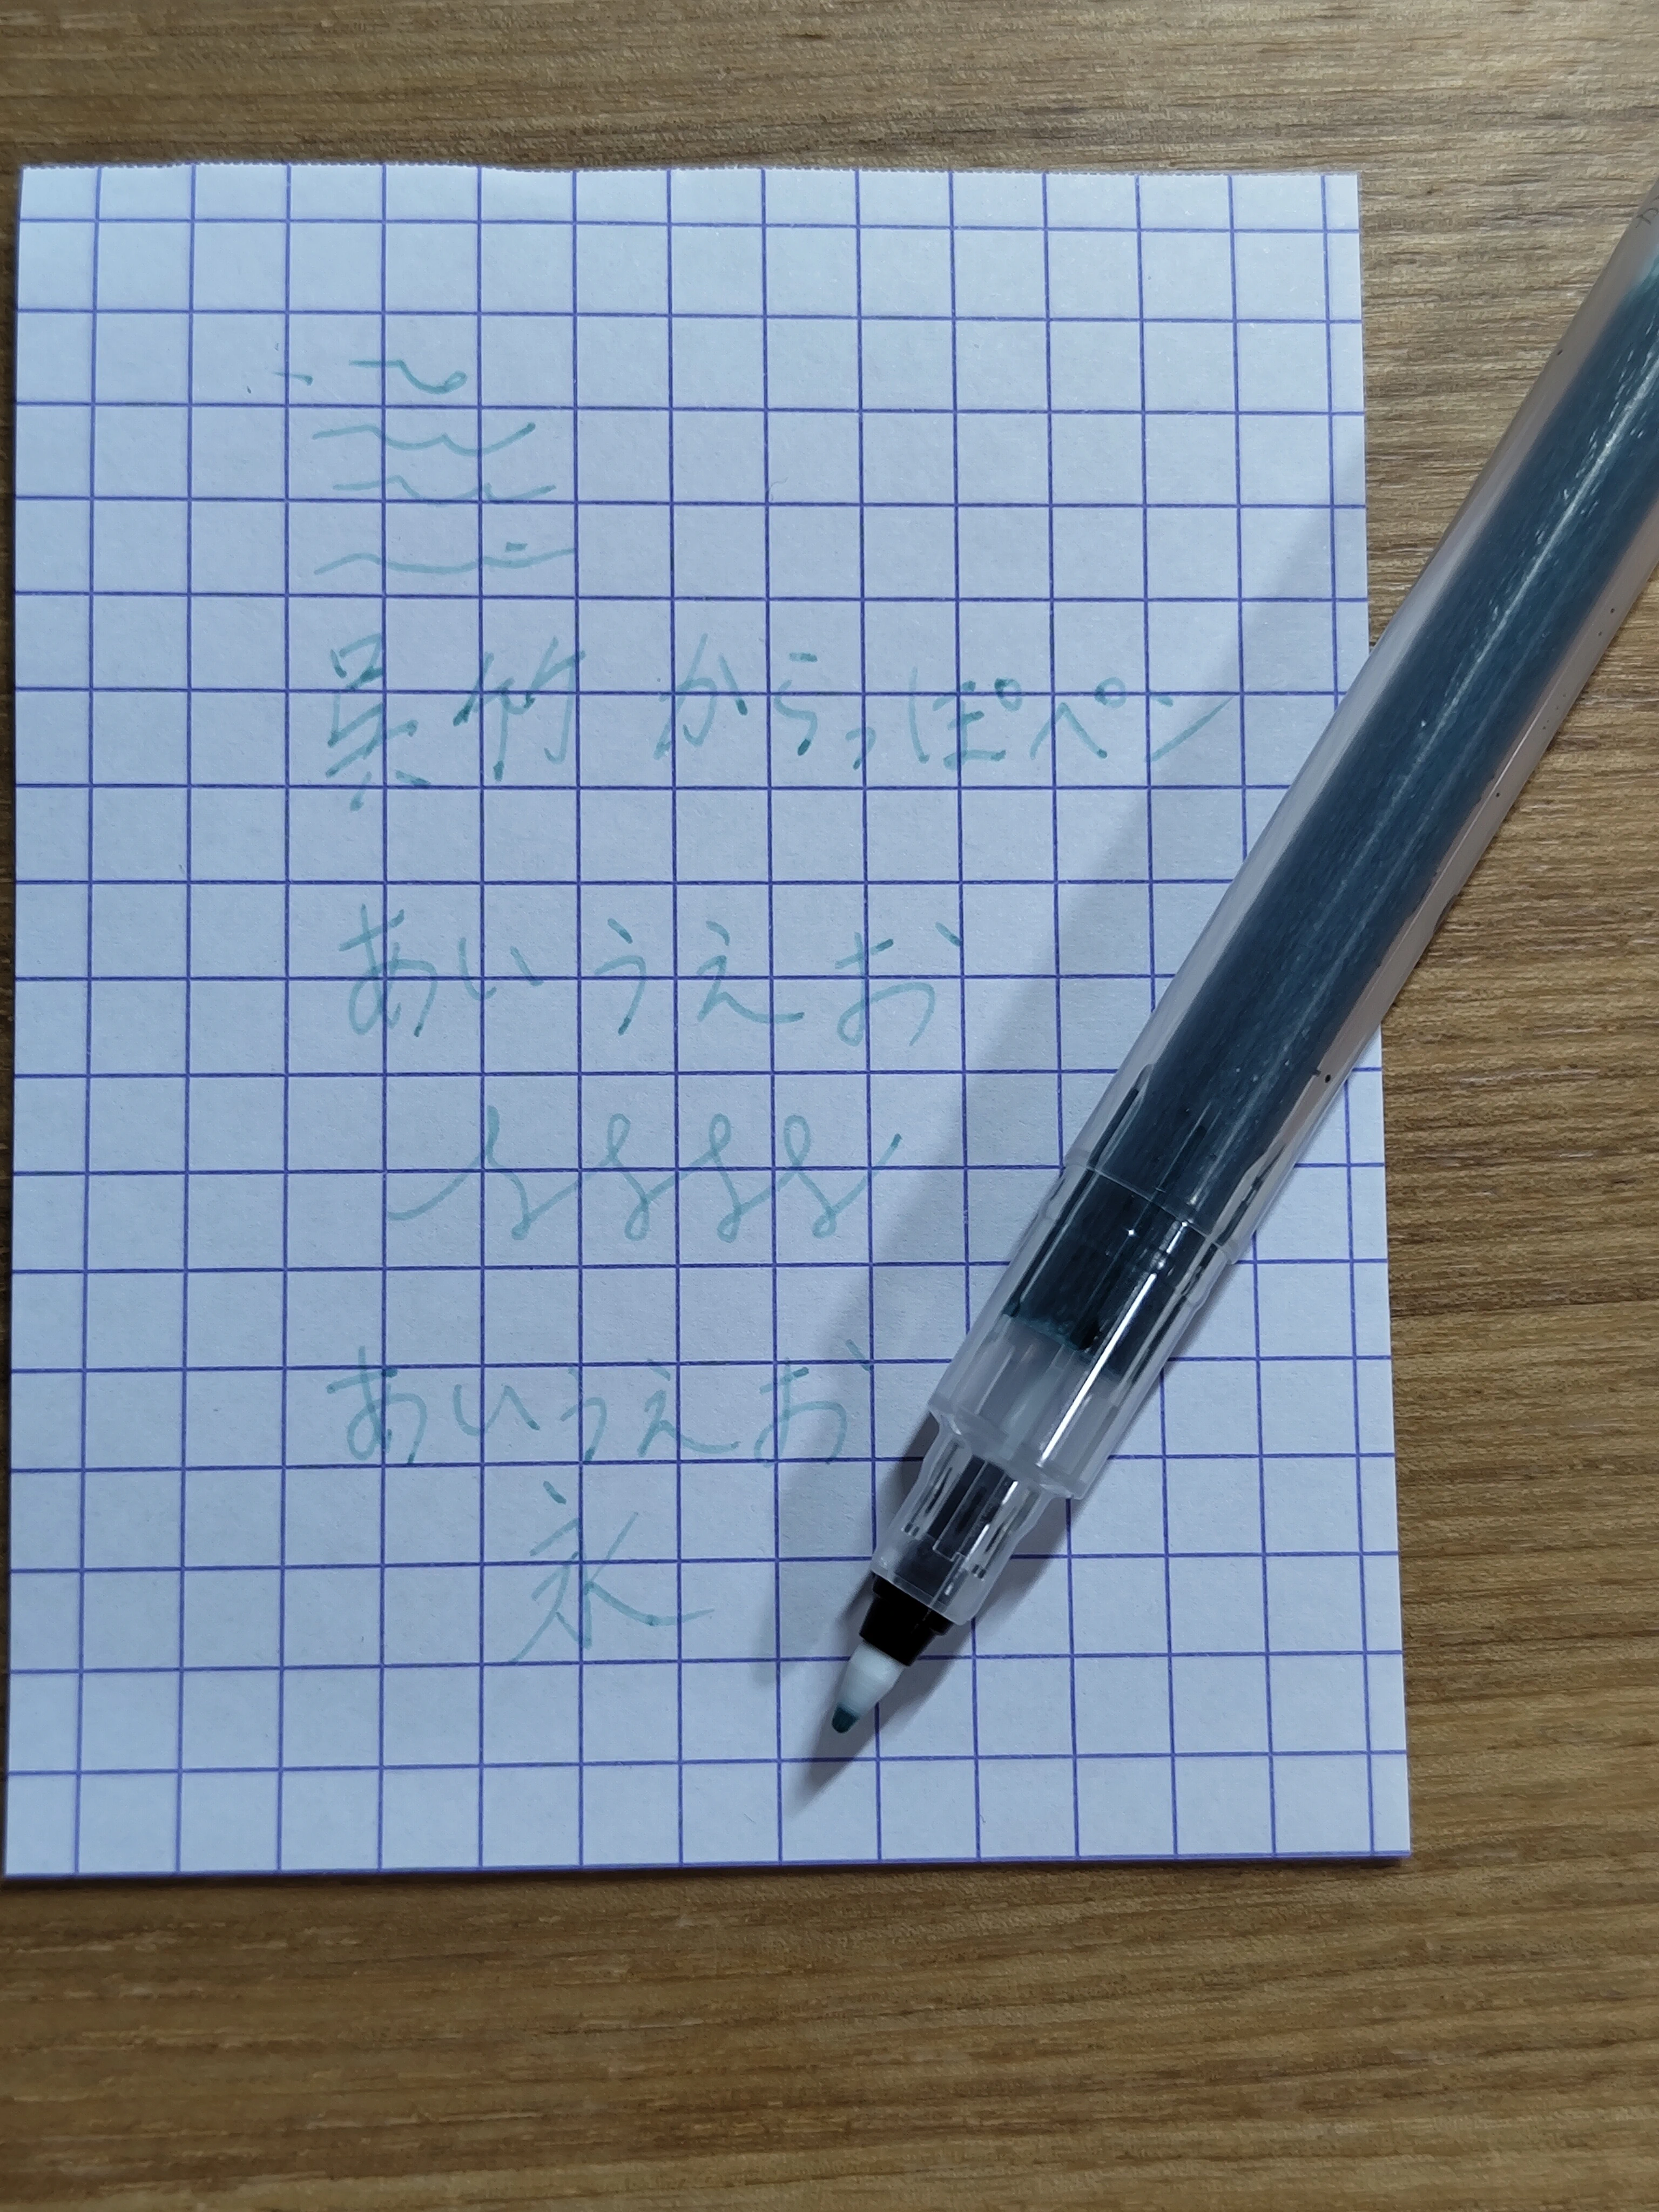 呉竹 からっぽペン
あいうえお
あいうえお
永